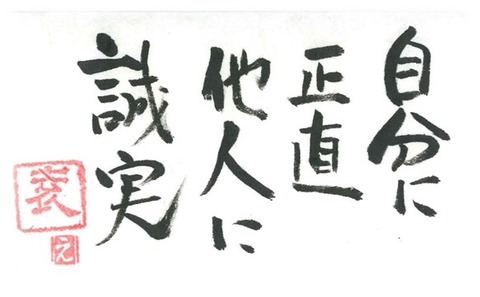 自分に
正直
他人に
誠実
え